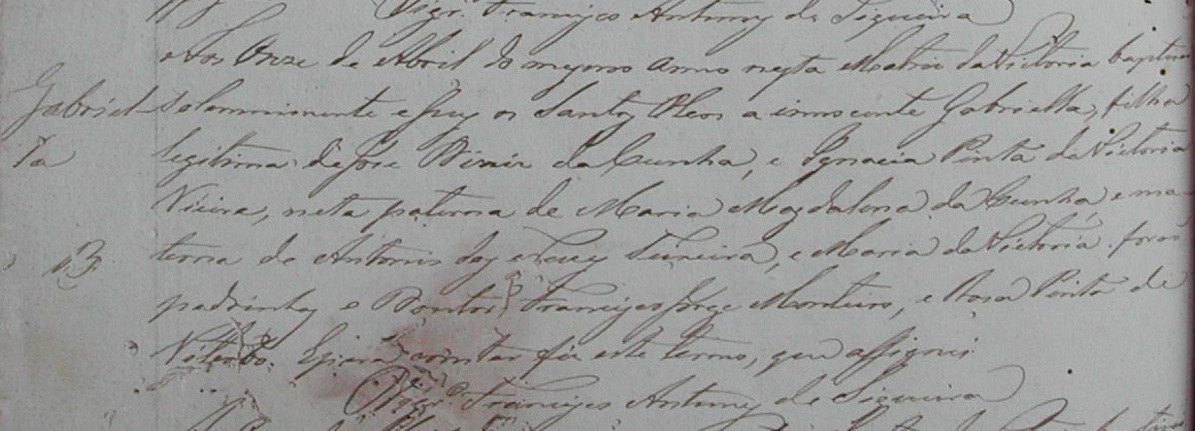 Vigr. Francisco Antunes de Siqueira
Aos Onze de Abril do mesmo anno nesta Matriz da Victoria baptisei
Gabriel- solemnimente e puz os Santos Oleos a innocente Gabriella, filha
la legitima de José Diniz da Cunha, e Ignacia Pinta da Victoria
Vieira, neta paterna de Maria Magdalena da Cunha, e ma-
B. terna de Antonio das Neves Teixeira, e Maria da Victoria. forão
padrinhos o Doutor Francisco Jorge Monteiro, e Rosa Pinta de
Viterbo. E para constar fiz este termo, que assignei
O Vigr.º Francisco Antunes de Siqueira